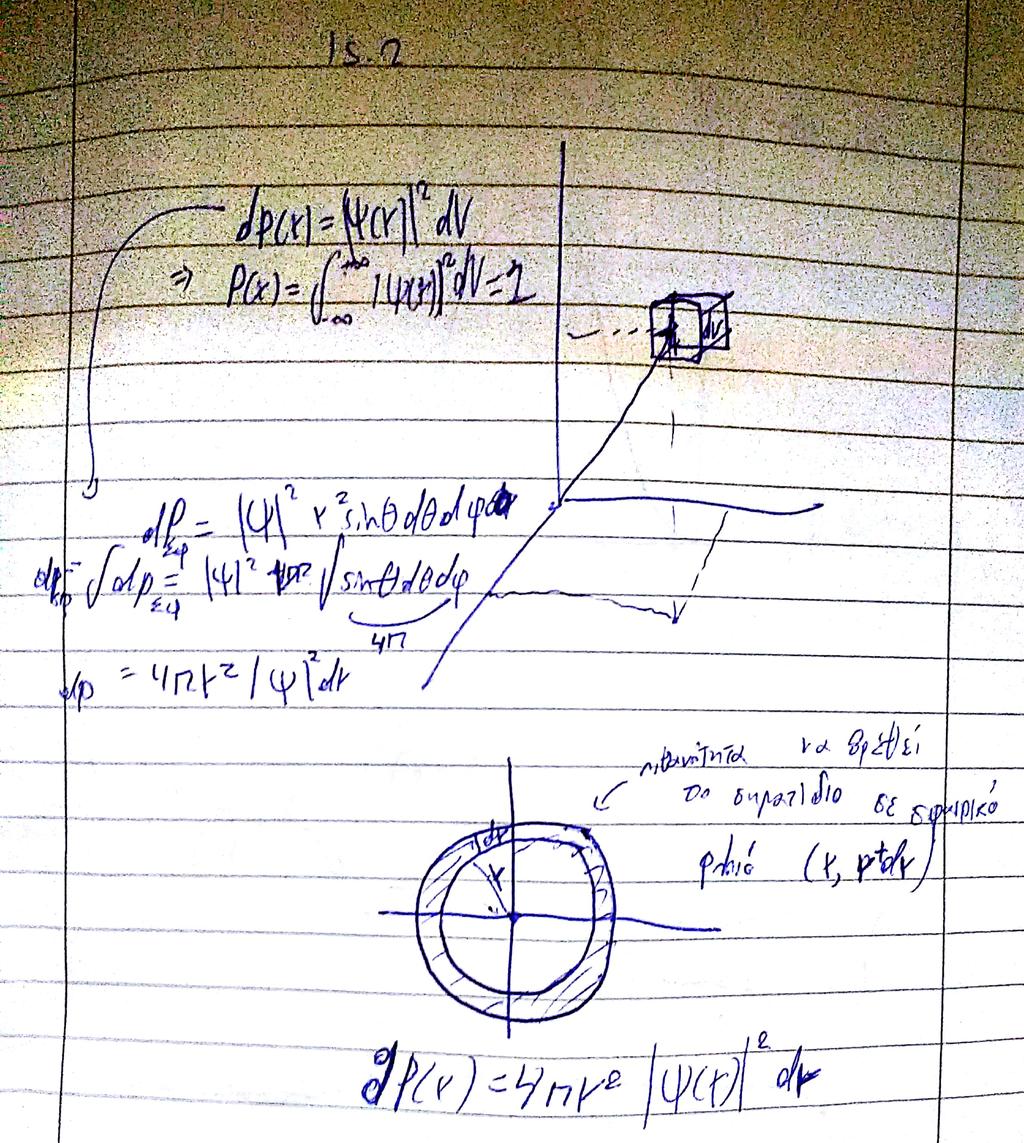 15.2
dp(r) = |Ψ(r)|² dV
⇒ P(r) = ∫_{-∞}^{+∞} |Ψ(r)|² dV = 1
dV
dP_{σφ} = |Ψ|² r² sinθ dθ dφ dr
∫ dp_{σφ} = |Ψ|² ∫ sinθ dθ dφ
4π
dp = 4πr² |Ψ|² dr
πιθανότητα να βρεθεί
το σηματίδιο σε σφαιρικό
φλοιό (r, r+dr)
dr
r
dP(r) = 4πr² |Ψ(r)|² dr